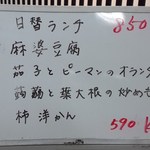 日替ランチ 850
麻婆豆腐
茄子とピーマンのオランダ
蒟蒻と葉大根の炒め
柿 洋かん
590